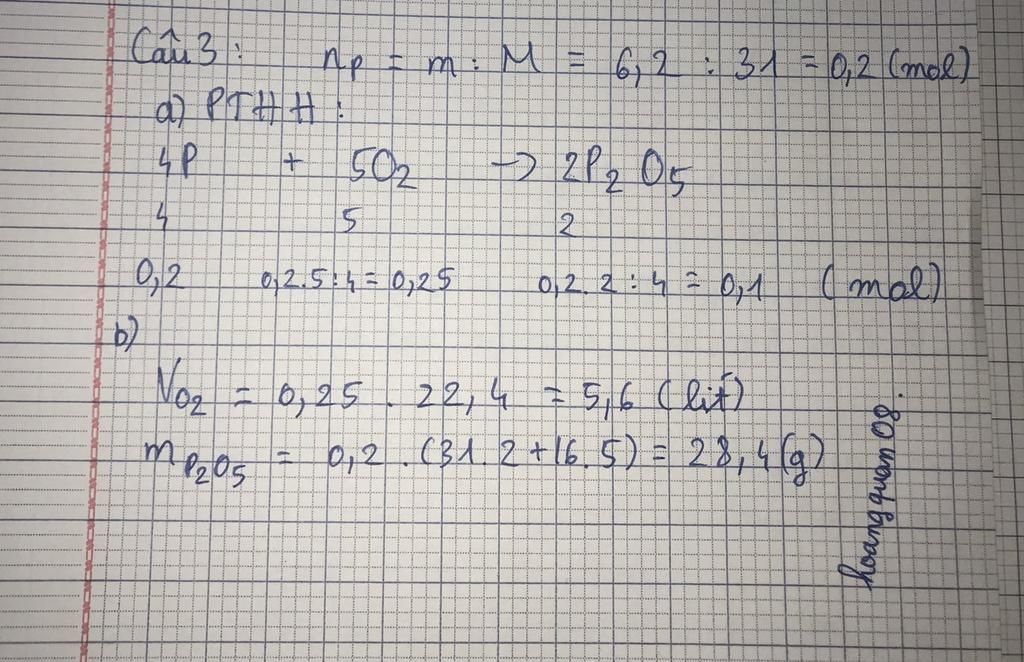 Câu 3: nP = m : M = 6,2 : 31 = 0,2 (mol)
a) PTHH:
4P + 5O2 -> 2P2O5
4 5 2
0,2 0,2.5:4 = 0,25 0,2.2:4 = 0,1 (mol)
b)
VO2 = 0,25 . 22,4 = 5,6 (lít)
mP2O5 = 0,2 . (31.2+16.5) = 28,4 (g)
hoangquan08.